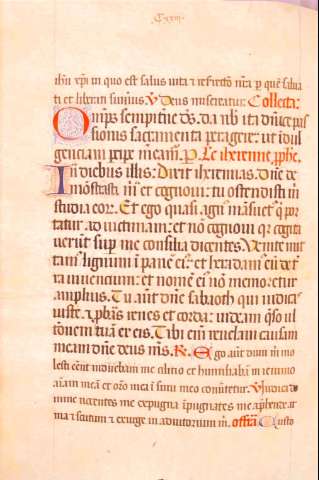 Cxxiii
ihu xpi in quo est salus uita et resurrectio nra p quē salua
ti et liberati sumus. V Deus misereatur. Collecta.
Omps sempitne ds. da nb ita dnice pas
sionis sacramenta peragere: ut indul
genciam pcipe meam. P. Lc iheremie pphe.
In diebus illis: Dixit iheremias. Dne de
monstrasti m et cognoui: tu ostendisti m
studia eor. Et ego quasi agn mansuet q por
tatur ad uictimam: et nō cognoui qr cogita
uerūt sup me consilia dicentes. Venite mit
tam lignum ī panē ei: et eradam eū de t
ra uiuencium: et nomē ei nō memoretur
amplius. Tu aūt dne sabaoth qui iudicas
iuste. et pbas renes et corda: uideam qso ul
tōnem tuā ex eis. Tibi em reuelaui causam
meam dne deus ms. R. Ego aūt dum m mo
lesti cent induebam me cilicio et humiliabā in ieiunio
aīam meā et orō mea ī sinu meo conūtetur. V Iudica dn
nocentes me expugna īpugnates me apphende ar
ma et scutum et exurge in adiutorium m. offra Custo